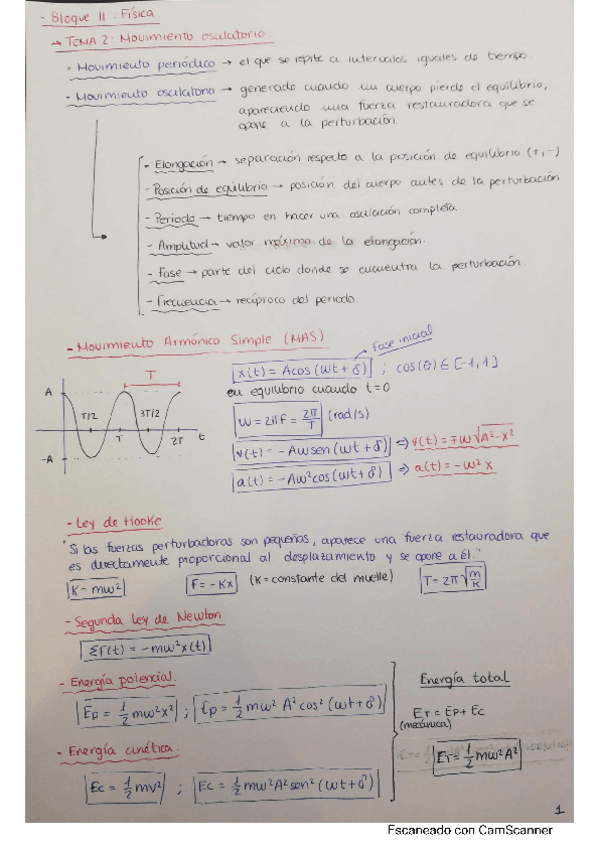 - Bloque II: Física.
→ TEMA 2: Movimiento osculatorio.
• Movimiento periódico → el que se repite a intervalos iguales de tiempo
• Movimiento osculatorio → generado cuando un cuerpo pierde el equilibrio,
apareciendo una fuerza restauradora que se
opone a la perturbación.
- Elongación → separación respecto a la posición de equilibrio (+,-)
- Posición de equilibrio → posición del cuerpo antes de la perturbación
- Periodo → tiempo en hacer una osculación completa.
- Amplitud → valor máximo de la elongación.
- Fase → parte del ciclo donde se encuentra la perturbación.
- Frecuencia → recíproco del periodo.
- Movimiento Armónico Simple (MAS)
Fase inicial
x(t) = A cos (ωt + δ) ; cos(θ) ∈ [-1, 1]
en equilibrio cuando t = 0
ω = 2πf = 2π/T (rad/s)
v(t) = -Aω sen (ωt + δ) ⇒ v(t) = ∓ω√(A²-x²)
a(t) = -Aω² cos (ωt + δ) ⇒ a(t) = -ω² x
T
A
T/2
3T/2
T
2T
t
-A
- Ley de Hooke
"Si las fuerzas perturbadoras son pequeñas, aparece una fuerza restauradora que
es directamente proporcional al desplazamiento y se opone a él."
K = mω² F = -Kx (K = constante del muelle) T = 2π√(m/K)
- Segunda Ley de Newton
ΣF(t) = -mω² x(t)
- Energía potencial.
Ep = 1/2 mω²x² ; Ep = 1/2 mω² A² cos² (ωt + δ)
- Energía cinética.
Ec = 1/2 mv² ; Ec = 1/2 mω²A² sen² (ωt + δ)
Energía total
ET = Ep + Ec
(mecánica)
ET = 1/2 mω²A²
1
Escaneado con CamScanner